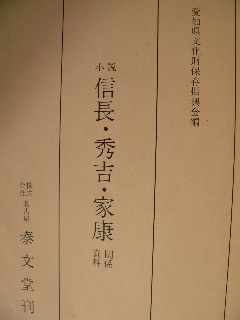 愛知県文化財保存振興会編
小説 信長・秀吉・家康 関係資料
株式会社 名古屋 泰文堂刊